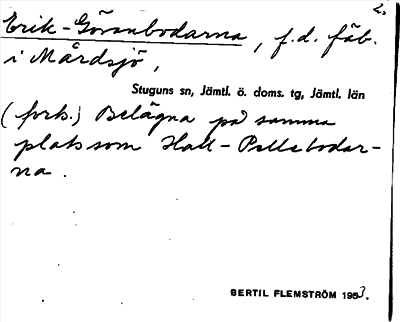 2.
Erik-Göransbodarna, f.d. fäb.
i Mårdsjö,
Stuguns sn, Jämtl. ö. doms. tg, Jämtl. län
(forts.) Belägna på samma
plats som Hall-Pellebodar-
na.
BERTIL FLEMSTRÖM 1953.